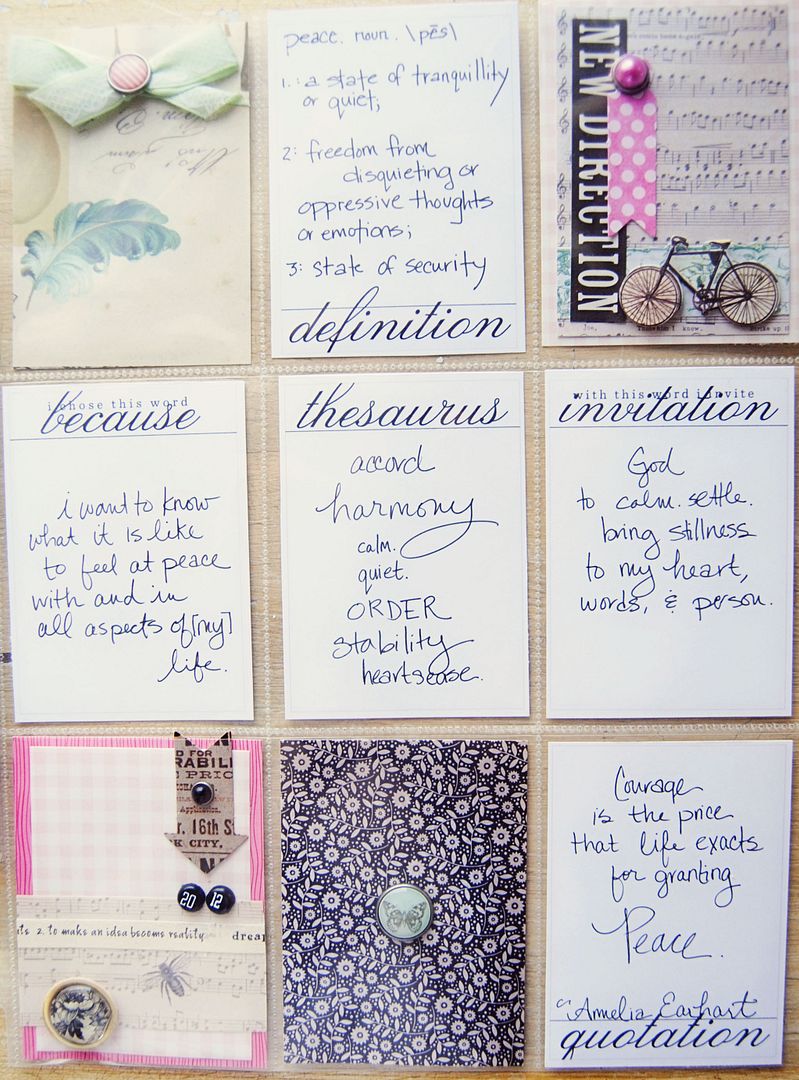 peace. noun. \pēs\
1.: a state of tranquillity
or quiet;
2: freedom from
disquieting or
oppressive thoughts
or emotions;
3: state of security
definition
NEW DIRECTION
Joe,
i chose this word
because
i want to know
what it is like
to feel at peace
with and in
all aspects of [my]
life.
thesaurus
accord
harmony
calm.
quiet.
ORDER
stability
heartsease.
with this word i invite
invitation
God
to calm. settle.
bring stillness
to my heart,
words, & person.
D FOR
RABILI
PRIC
Application.
r. 16th S
K CITY.
20 12
2. to make an idea become reality
drea
Courage
is the price
that life exacts
for granting
Peace.
~Amelia Earhart
quotation